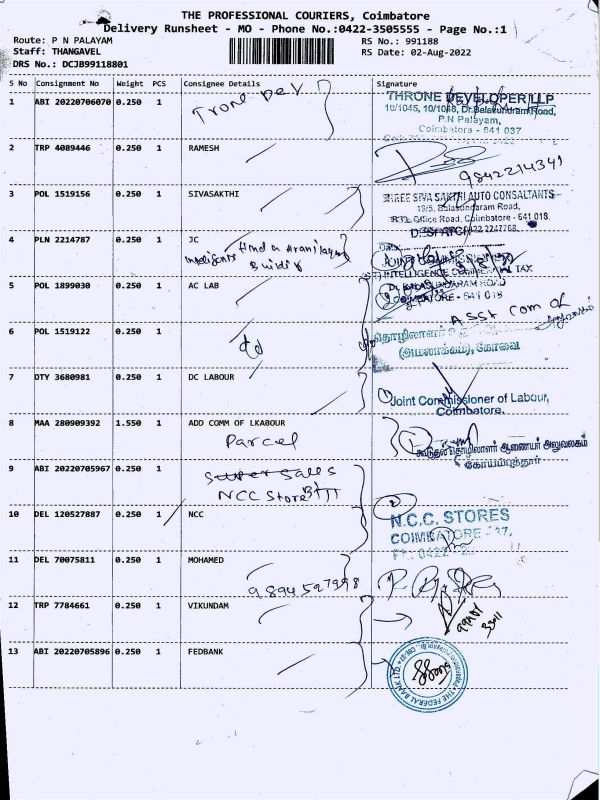 THE PROFESSIONAL COURIERS, Coimbatore
Delivery Runsheet - MO - Phone No.:0422-3505555 - Page No.:1
Route: P N PALAYAM
RS No.: 991188
Staff: THANGAVEL
RS Date: 02-Aug-2022
DRS No.: DCJB99118801
S No Consignment No Weight PCS Consignee Details Signature
1 ABI 20220706070 0.250 1 Trone Dev
THRONE DEVELOPER LLP
10/1045, 10/1048, Dr.Balasundram Road,
P.N Palayam,
Coimbatore - 641 037
2 TRP 4089446 0.250 1 RAMESH
9842214341
3 POL 1519156 0.250 1 SIVASAKTHI
SHREE SIVA SAKTHI AUTO CONSALTANTS
Balasundaram Road,
Office Road, Coimbatore - 641 018.
4 PLN 2214787 0.250 1 JC
INTELLIGENCE COMMERCIAL TAX
5 POL 1899030 0.250 1 AC LAB
Dr. BALASUNDARAM ROAD
COIMBATORE - 641 018
Asst Com of
6 POL 1519122 0.250 1
(அமலாக்கம்), கோவை
7 DTY 3680981 0.250 1 DC LABOUR
Joint Commissioner of Labour,
Coimbatore.
8 MAA 280909392 1.550 1 ADD COMM OF LKABOUR
Parcel
கூடுதல் தொழிலாளர் ஆணையர் அலுவலகம்
கோயம்புத்தூர்
9 ABI 20220705967 0.250 1 Super Sales
NCC Store
10 DEL 120527887 0.250 1 NCC
N.C.C. STORES
COIMBATORE - 37.
11 DEL 70075811 0.250 1 MOHAMED
9894527998
12 TRP 7784661 0.250 1 VIKUNDAM
13 ABI 20220705896 0.250 1 FEDBANK
THE FEDERAL BANK